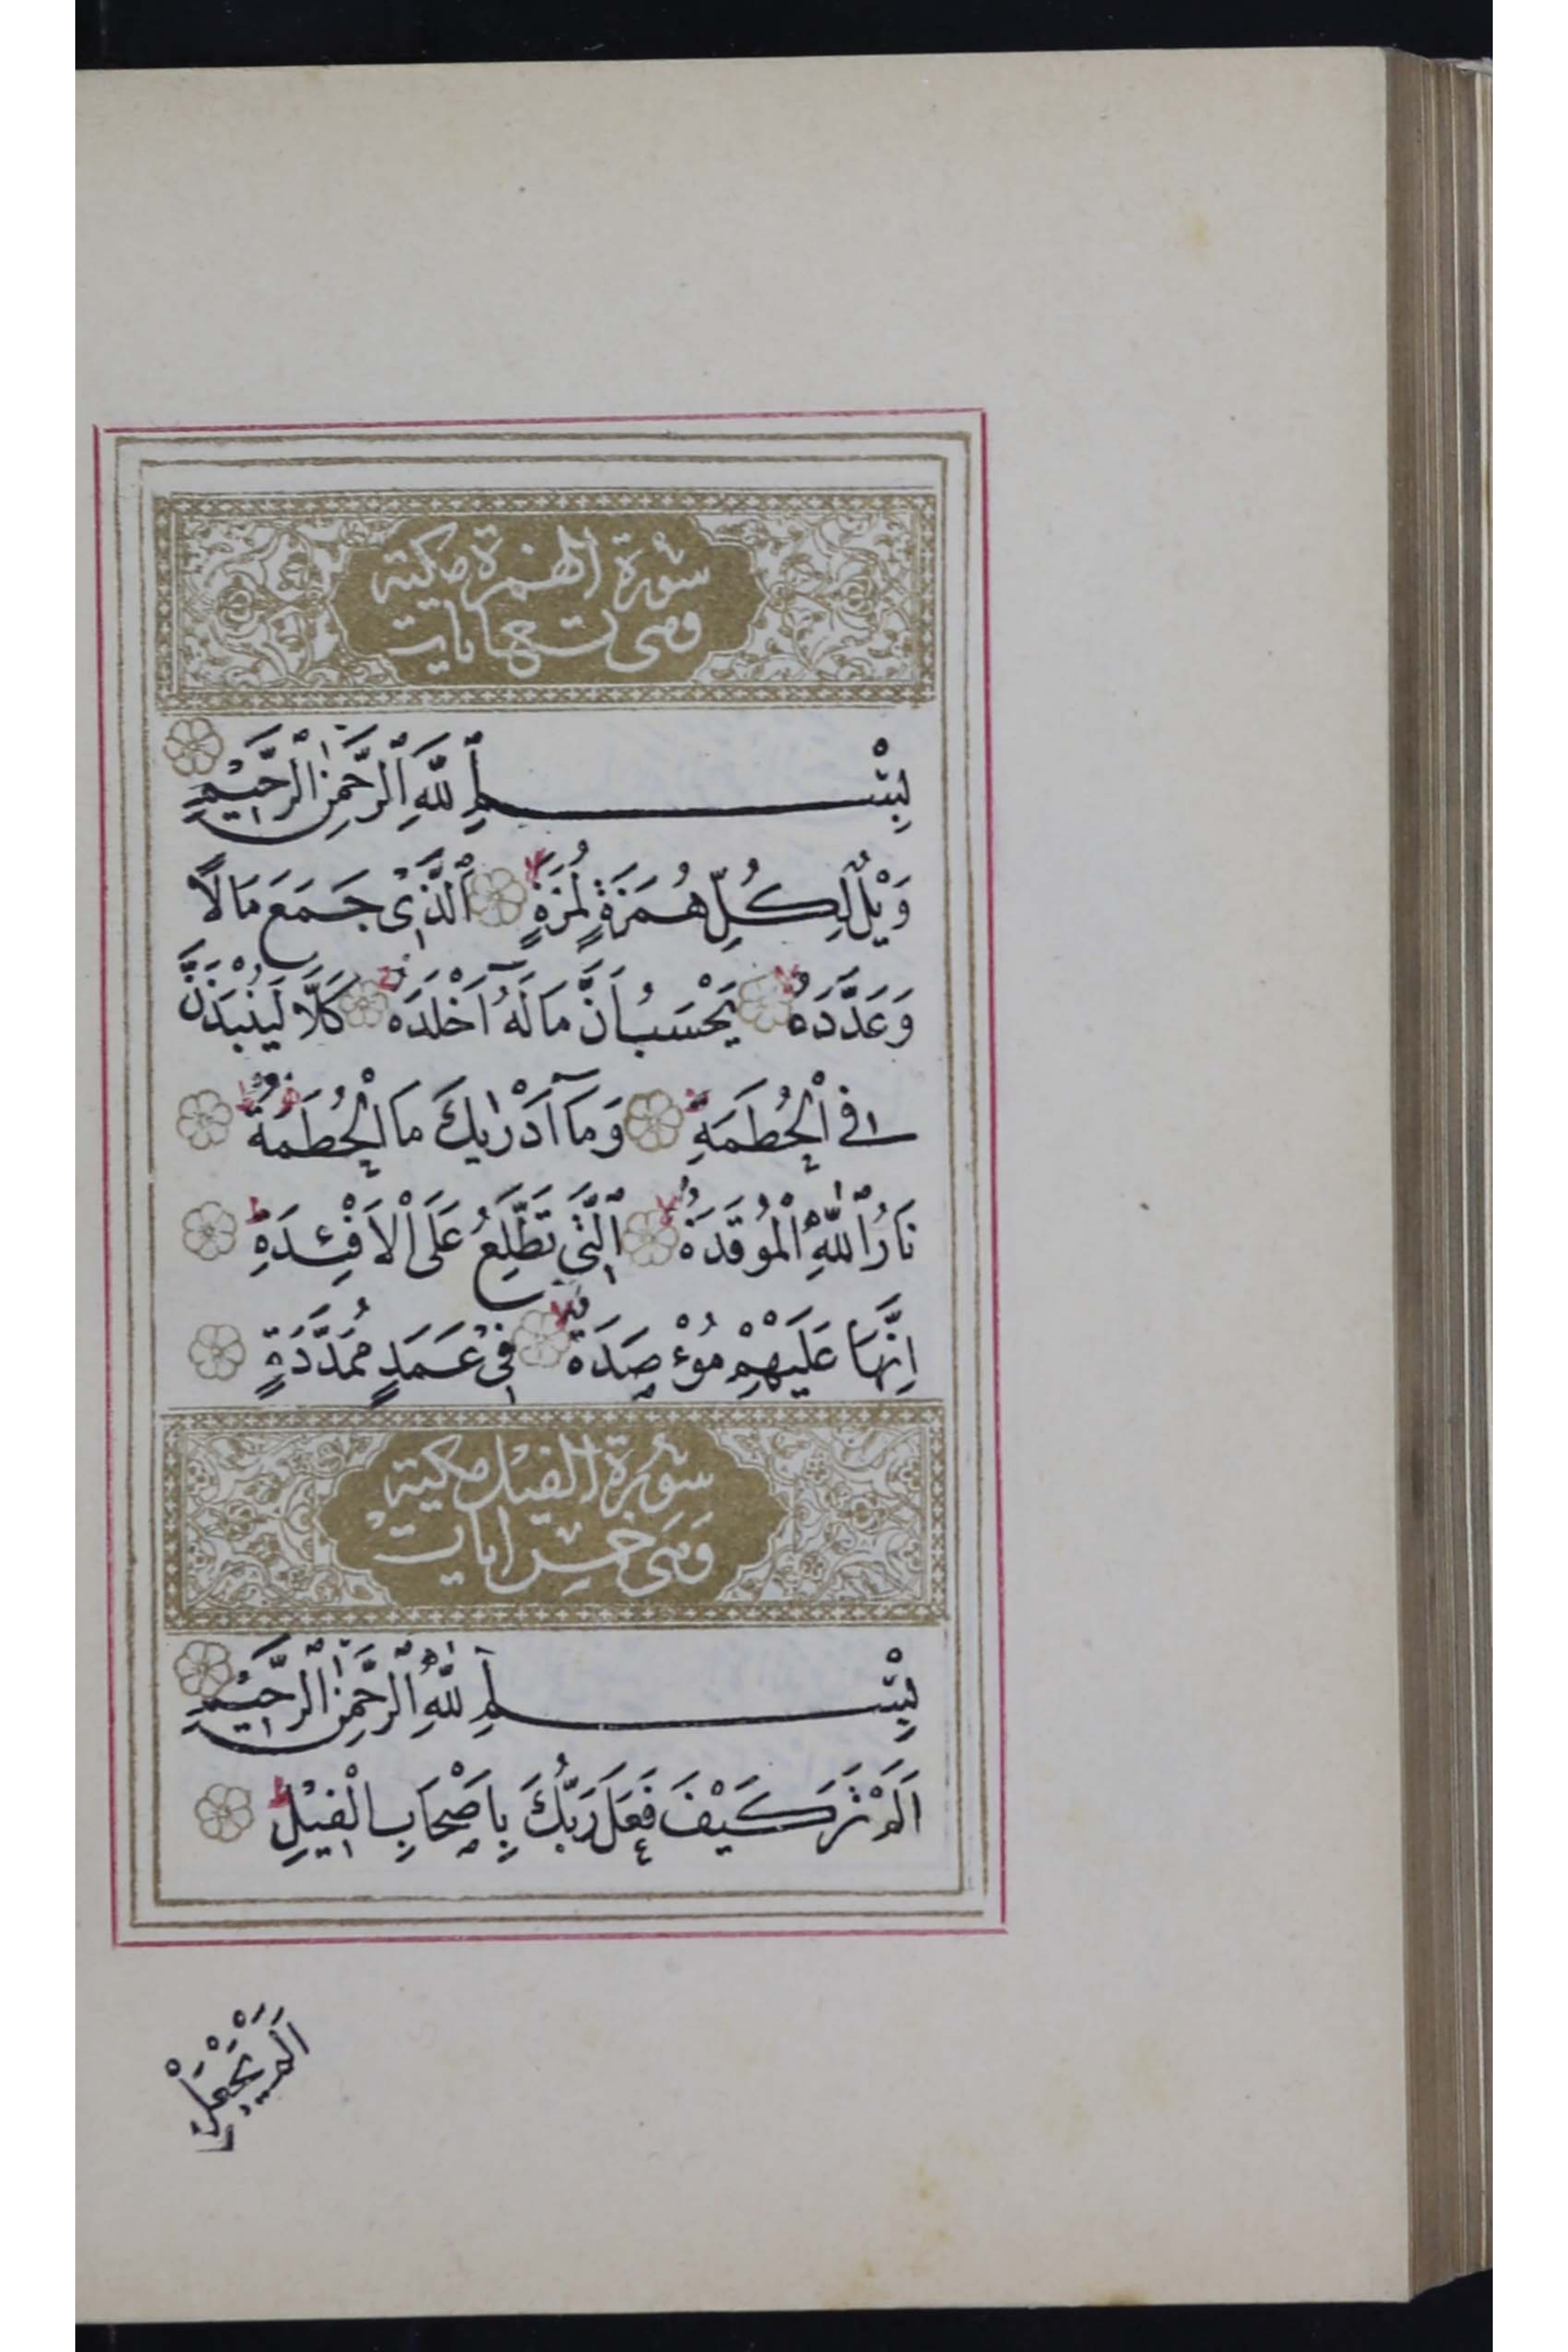 سُورَة الهمزة مكية
وهى تسع ايات
بِسْمِ ٱللّٰهِ ٱلرَّحْمٰنِ ٱلرَّحِيْمِ
وَيْلٌ لِكُلِّ هُمَزَةٍ لُمَزَةٍ ۙ اَلَّذٖى جَمَعَ مَالًا
وَعَدَّدَهُ ۙ يَحْسَبُ اَنَّ مَالَهُ اَخْلَدَهُ ۚ كَلَّا لَيُنْبَذَنَّ
فِى الْحُطَمَةِ ۖ وَمَآ اَدْرٰيكَ مَا الْحُطَمَةُ ۗ
نَارُ اللّٰهِ الْمُوقَدَةُ ۙ اَلَّتٖى تَطَّلِعُ عَلَى الْاَفْـِٔدَةِ ۗ
اِنَّهَا عَلَيْهِمْ مُوءْصَدَةٌ ۙ فٖى عَمَدٍ مُمَدَّدَةٍ
سُورَة الفيل مكية
وَهَى خمس ايات
بِسْمِ اللّٰهِ الرَّحْمٰنِ الرَّحِيْمِ
اَلَمْ تَرَ كَيْفَ فَعَلَ رَبُّكَ بِاَصْحَابِ الْفٖيْلِ ۗ
اَلَمْ يَجْعَلْ